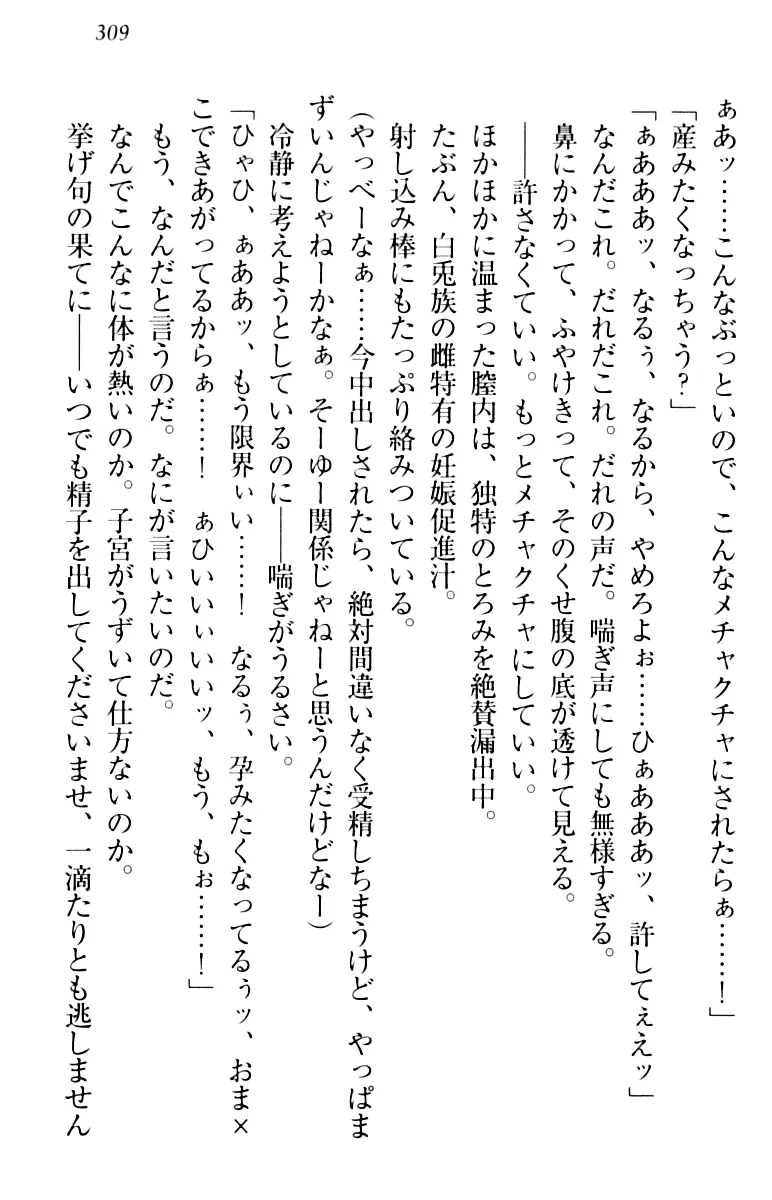 309
ぁあッ……こんなぶっといので、こんなメチャクチャにされたらぁ……！」
「産みたくなっちゃう？」
「ぁあああッ、なるぅ、なるから、やめろよぉ……ひぁあああッ、許してぇえッ」
なんだこれ。だれだこれ。だれの声だ。喘ぎ声にしても無様すぎる。
鼻にかかって、ふやけきって、そのくせ腹の底が透けて見える。
――許さなくていい。もっとメチャクチャにしていい。
ほかほかに温まった膣内は、独特のとろみを絶賛漏出中。
たぶん、白兎族の雌特有の妊娠促進汁。
射し込み棒にもたっぷり絡みついている。
（やっべーなぁ……今中出しされたら、絶対間違いなく受精しちまうけど、やっぱま
ずいんじゃねーかなぁ。そーゆー関係じゃねーと思うんだけどなー）
冷静に考えようとしているのに――喘ぎがうるさい。
「ひゃひ、ぁああッ、もう限界ぃい……！　なるぅ、孕みたくなってるぅッ、おま×
こできあがってるからぁ……！　ぁひいいぃいいッ、もう、もぉ……！」
もう、なんだと言うのだ。なにが言いたいのだ。
なんでこんなに体が熱いのか。子宮がうずいて仕方ないのか。
挙げ句の果てに――いつでも精子を出してくださいませ、一滴たりとも逃しません